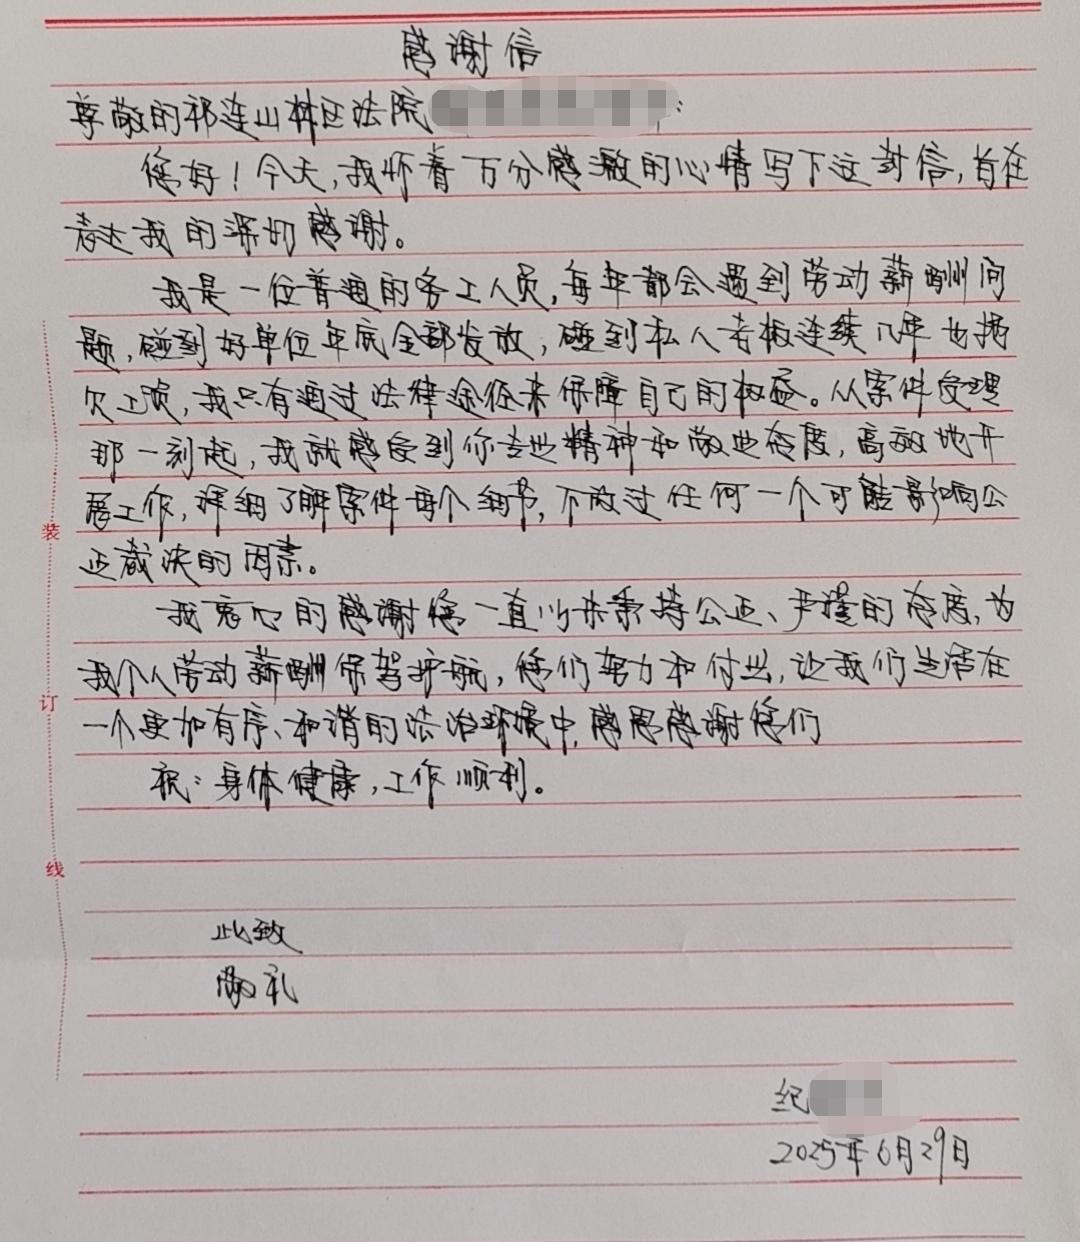 感谢信
尊敬的祁连山林区法院
您好！今天，我怀着万分感激的心情写下这封信，旨在
表达我的深切感谢。
我是一位普通的务工人员，每年都会遇到劳动薪酬问
题，碰到好单位年底全部发放，碰到私人老板连续几年也拖
欠工资，我只有通过法律途径来保障自己的权益。从案件受理
那一刻起，我就感受到你专业精神和敬业态度，高效地开
展工作，详细了解案件每个细节，不放过任何一个可能影响公
正裁决的因素。
我衷心的感谢您一直以来秉持公正、严谨的态度，为
我个人劳动薪酬保驾护航，您们努力和付出，让我们生活在
一个更加有序、和谐的法治环境中，感恩感谢您们
祝：身体健康，工作顺利。
此致
敬礼
纪
2025年6月29日
装
订
线